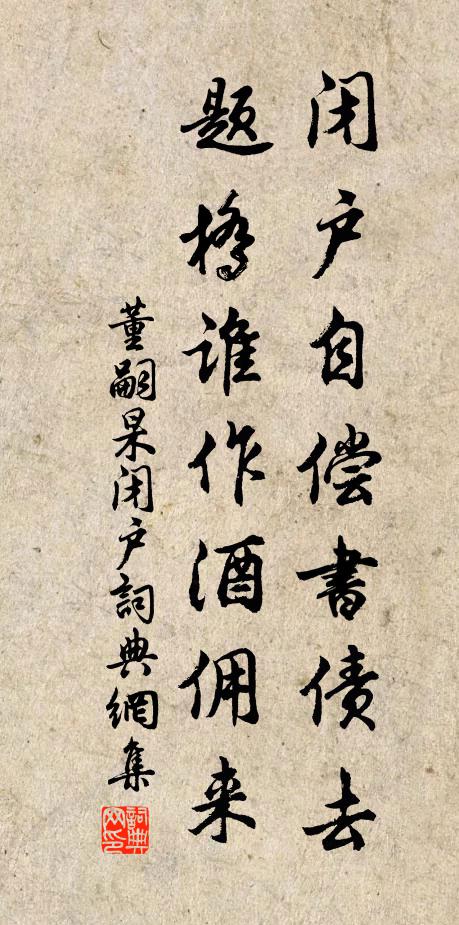 闭户自偿书债去
题桥谁作酒佣来
董嗣杲闭户詞典網集
詞典网印